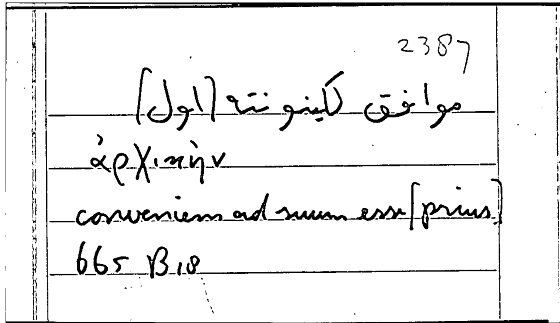 2387
موافق لكينونته [اول]
ἀρχικὴν
conveniens ad suum esse [prius]
665 B18